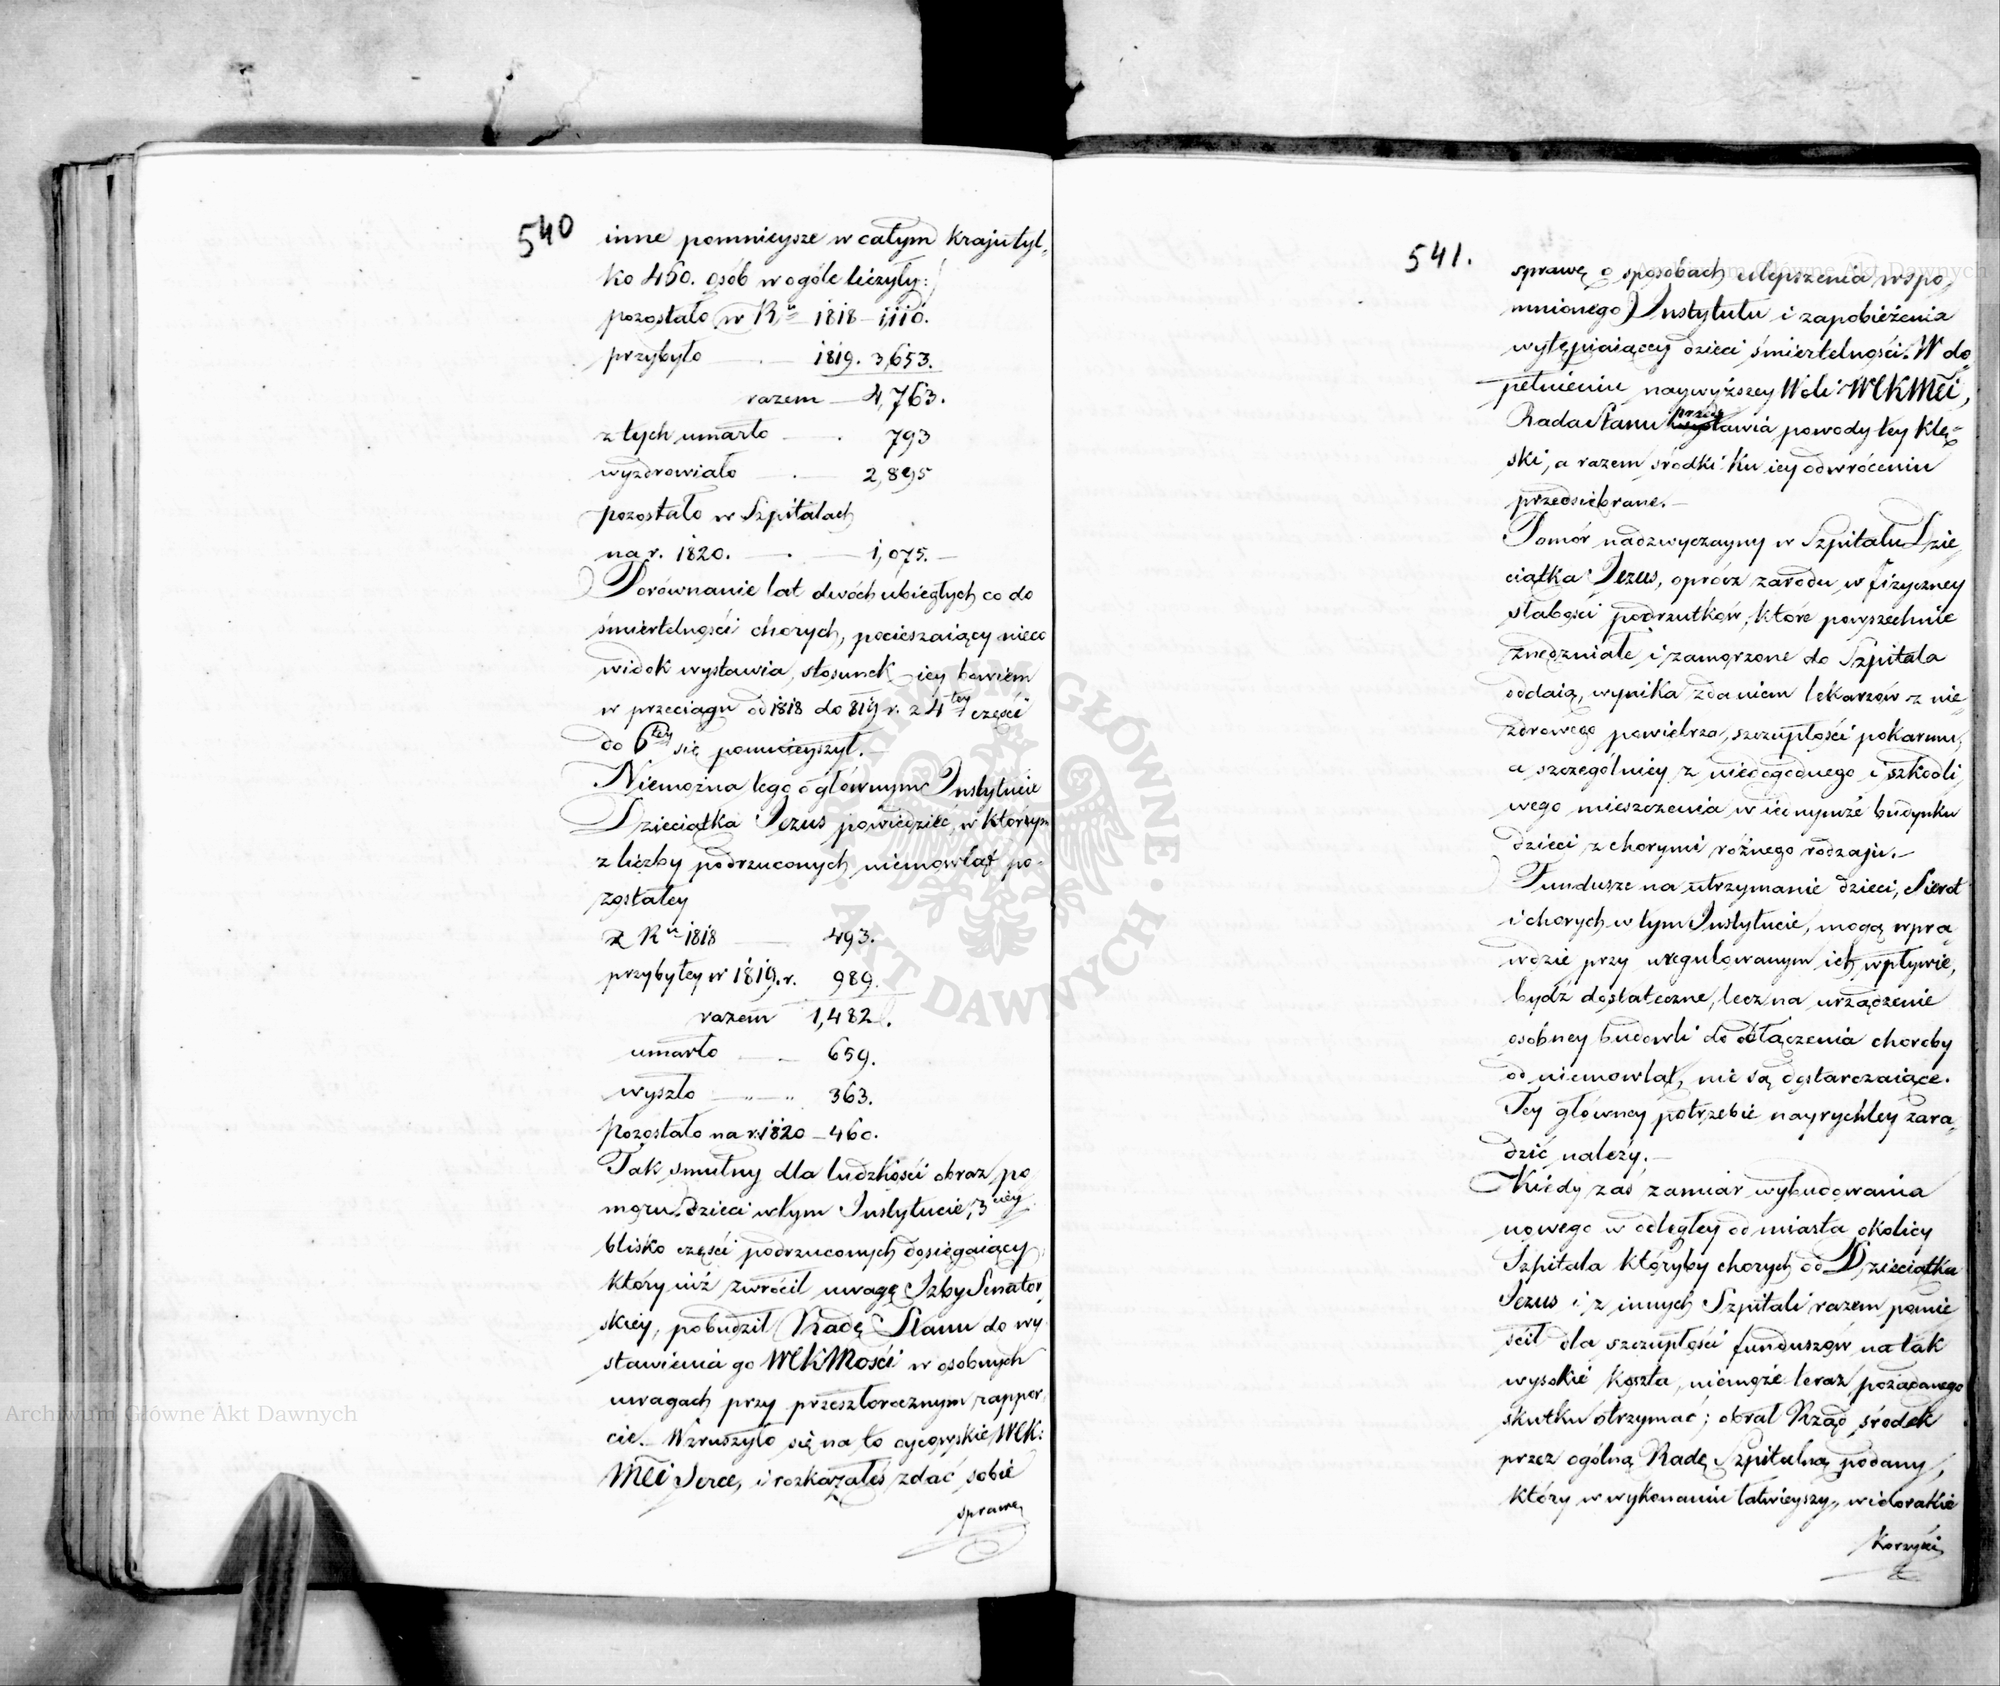 540
inne pomnieysze w całym Kraju tyl-
ko 450. osób w ogóle liczyły:)
pozostało w Ru 1818 — 1,110.
przybyło — 1819. 3,653.
razem — 4,763.
z tych umarło — 793
wyzdrowiało — 2,895
pozostało w Szpitalach
na r. 1820. — 1,075. —
Porównanie lat dwóch ubiegłych co do
śmiertelności chorych, pocieszaiący nieco
widok wystawia, stosunek iey bowiem
w przeciągu od 1818 do 819 r. z 4tey części
do 6tey się pomnieyszył. —
Niemożna tego o głównym Instytucie
Dzieciątka Jezus powiedzieć, w którym
z liczby podrzuconych niemowląt po-
zostałey
z Ru 1818 — 493.
przybyłey w 1819. r. 989.
razem 1,482.
umarło — 659.
wyszło — 363.
Pozostało na r. 1820 — 460.
Tak smutny dla ludzkości obraz po
moru dzieci w tym Instytucie, 3ciey
blisko części podrzuconych dosięgaiący
który iuż zwrócił uwagę Izby Senator
skiéy, pobudził Radę Stanu do wy-
stawienia go WCKMości w osobnych
uwagach przy przeszłorocznym rappor-
cie. Wzruszyło się na to oycowskie WCK:
MCi Serce, i rozkazałeś zdać sobie
sprawę
541.
sprawę o sposobach ulepszenia wspo-
mnionego Instytutu i zapobieżenia
wytępiaiącey dzieci śmiertelności. W do
pełnieniu naywyższey Woli WCKMCi,
Rada Stanu przedstawia powody tey klę-
ski, a razem środki ku iey odwróceniu
przedsiębrane. —
Pomór nadzwyczayny w Szpitalu Dzie
ciątka Jezus, oprócz zarodu w fizyczney
słabości podrzutków, które powszechnie
znędzniałe i zamorzone do Szpitala
oddaią, wynika zdaniem lekarzów z nie-
zdrowego powietrza, szczupłości pokarmu,
a szczególniey z niedogodnego i szkodli
wego mieszczenia w iednymże budynku
dzieci z chorymi różnego rodzaju. —
Fundusze na utrzymanie dzieci, Sierot
i chorych w tym Instytucie, mogą wpra
wdzie przy uregulowanym ich wpływie,
bydź dostateczne, lecz na urządzenie
osobney budowli do odłączenia choroby
od niemowląt, nie są dostarczaiące.
Tey główney potrzebie nayrychley zara-
dzić należy. —
Kiedy zaś zamiar wybudowania
nowego w odległey od miasta okolicy
Szpitala któryby chorych od Dzieciątka
Jezus i z innych Szpitali razem pomie
ścił dla szczupłości funduszów na tak
wysokie koszta, niemoże teraz pożądanego
skutku otrzymać; obrał Rząd środek
przez ogólną Radę Szpitalną podany,
który w wykonaniu łatwieyszy, wielorakie
Korzyści
Archiwum Główne Akt Dawnych
Archiwum Główne Akt Dawnych
ARCHIWUM GŁÓWNE AKT DAWNYCH